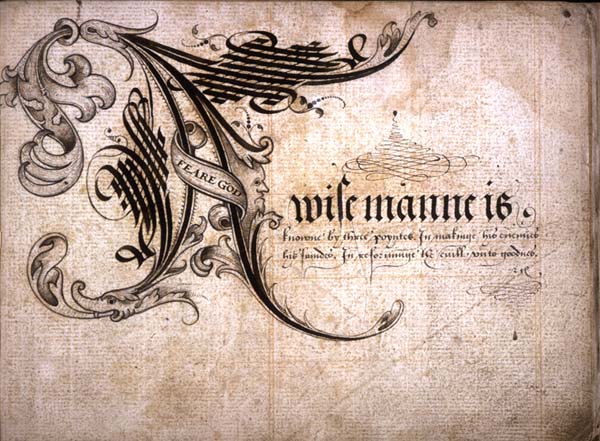 A
FEARE GOD
wiſe manne is
knowne by three poyntes. In makinge his enemies
his In reforminge the euill vnto goodnes.